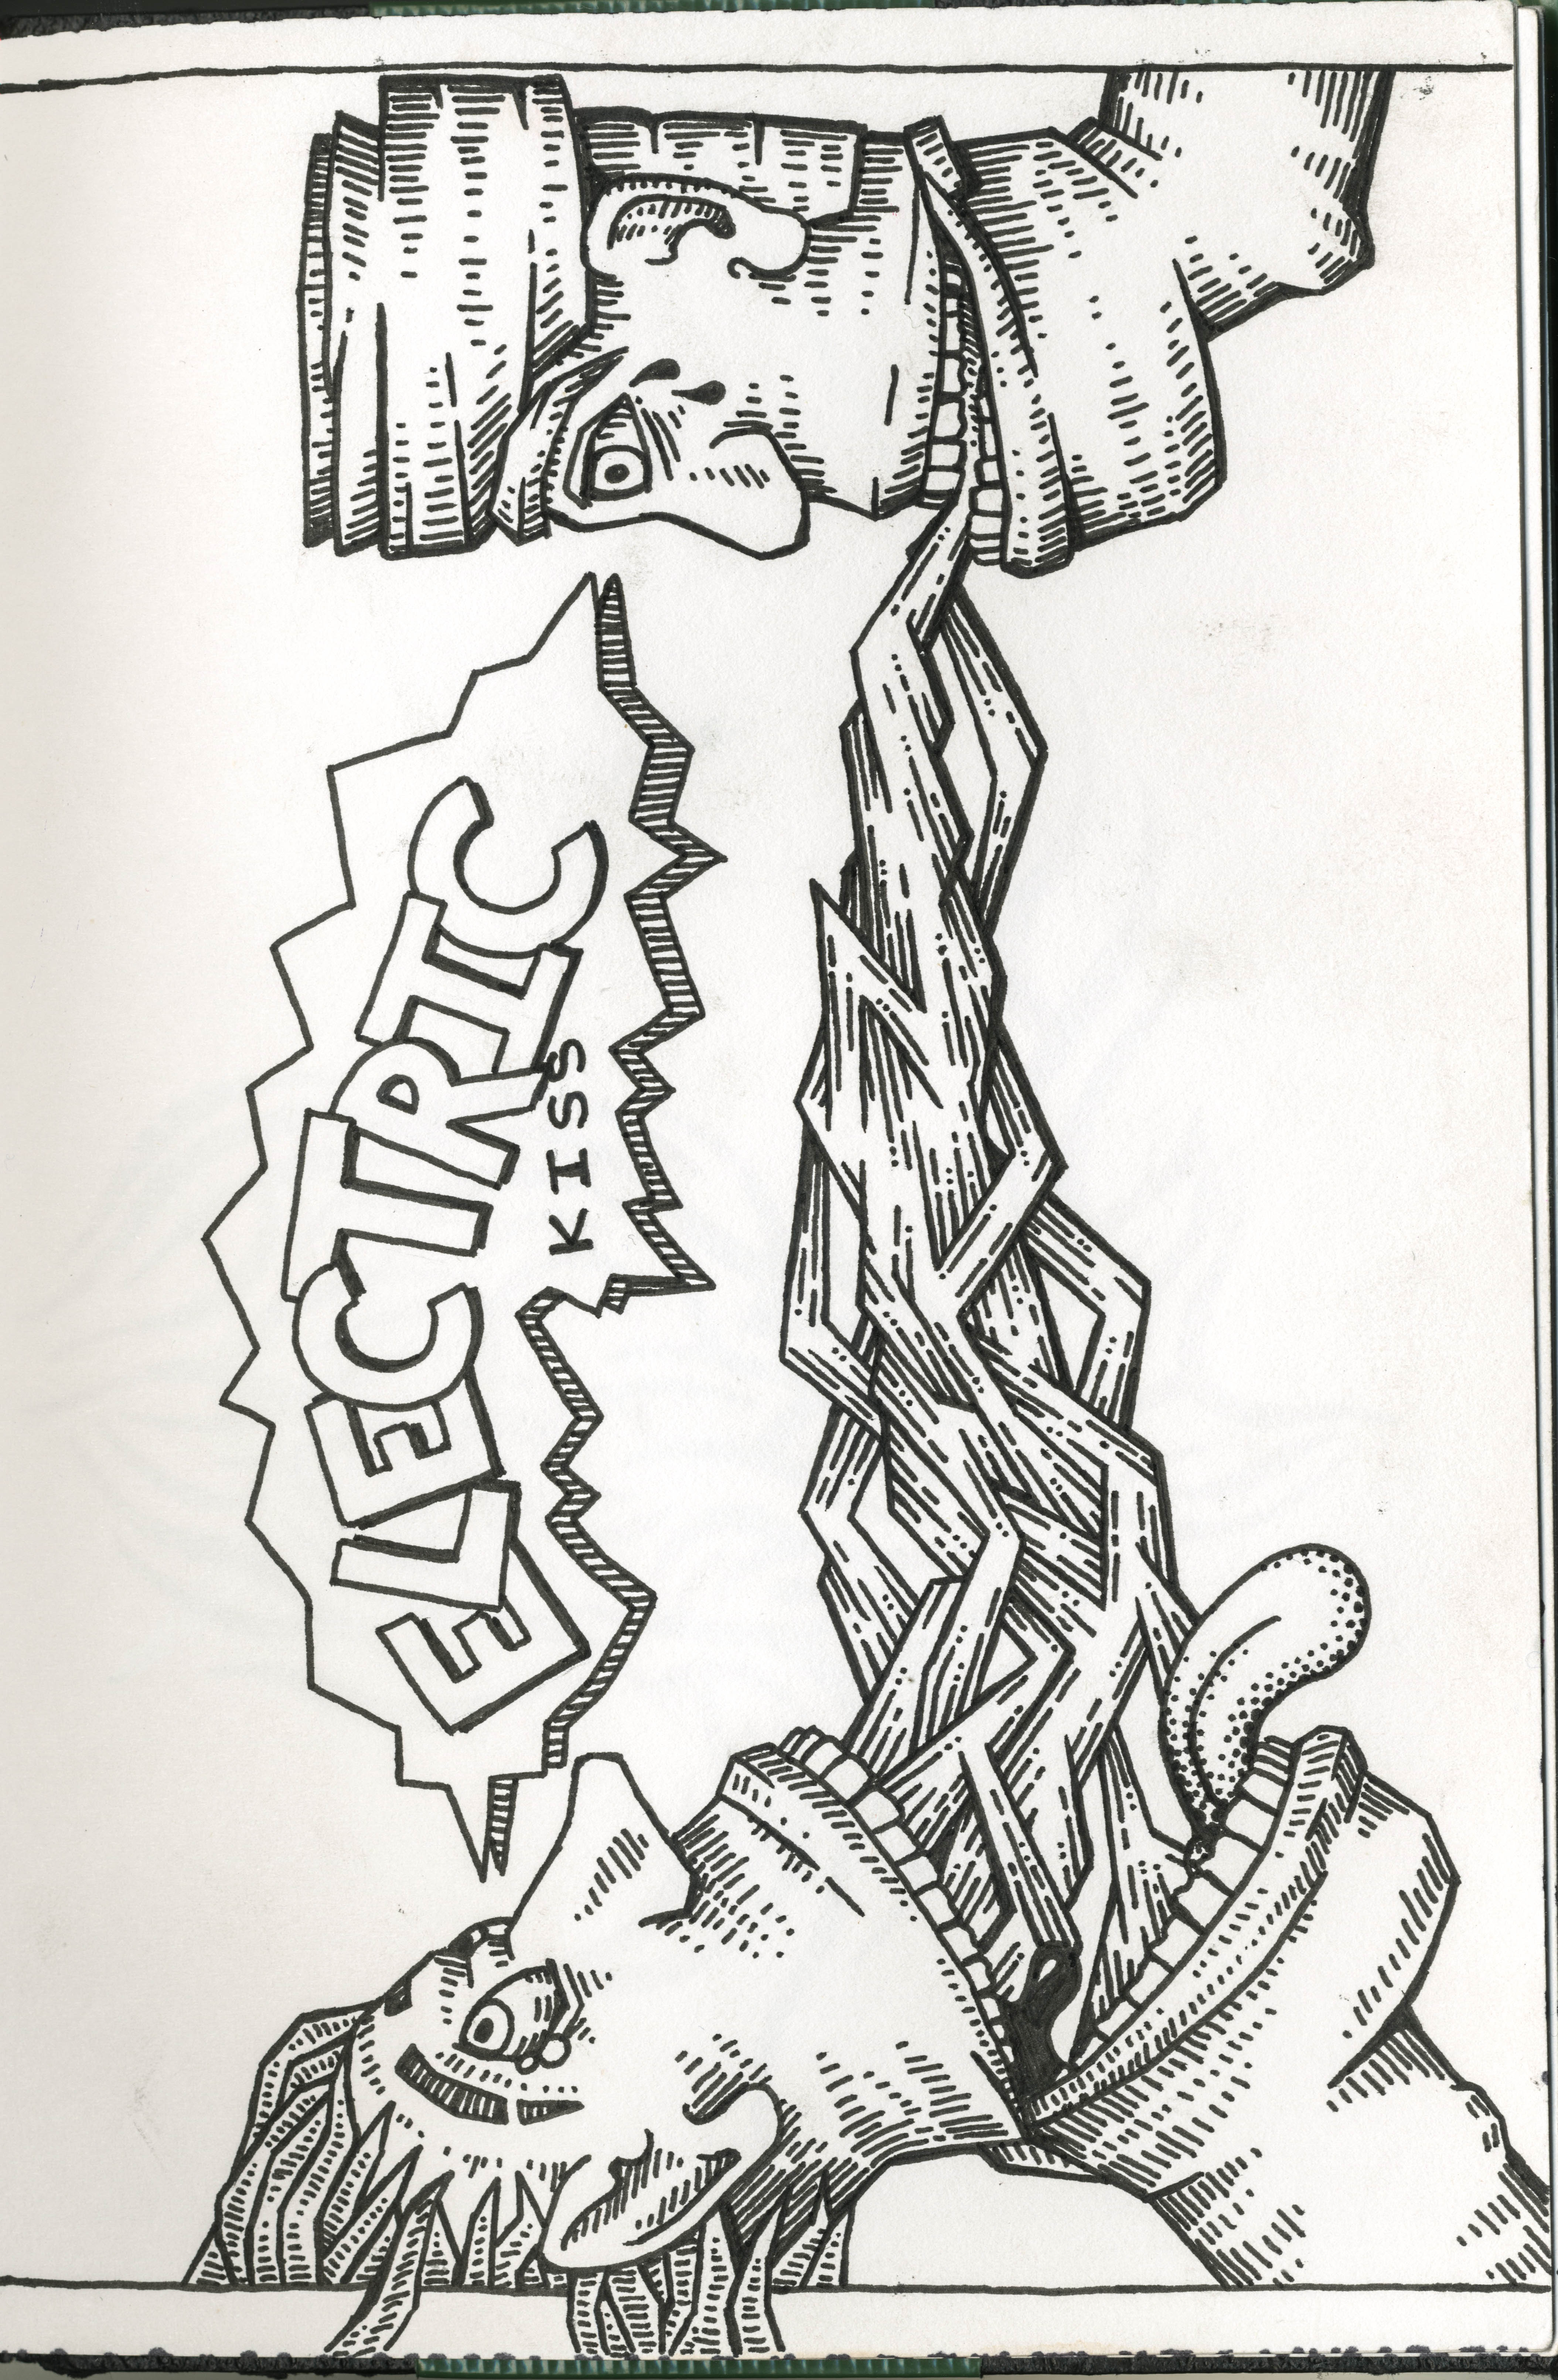 ELECTRIC
KISS